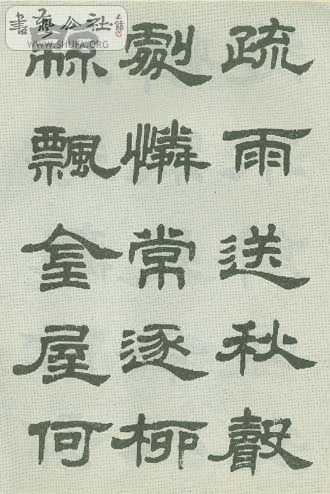 疏雨送秋聲
劇憐常逐柳
飄金屋何
書藝公社
WWW.SHUFA.ORG